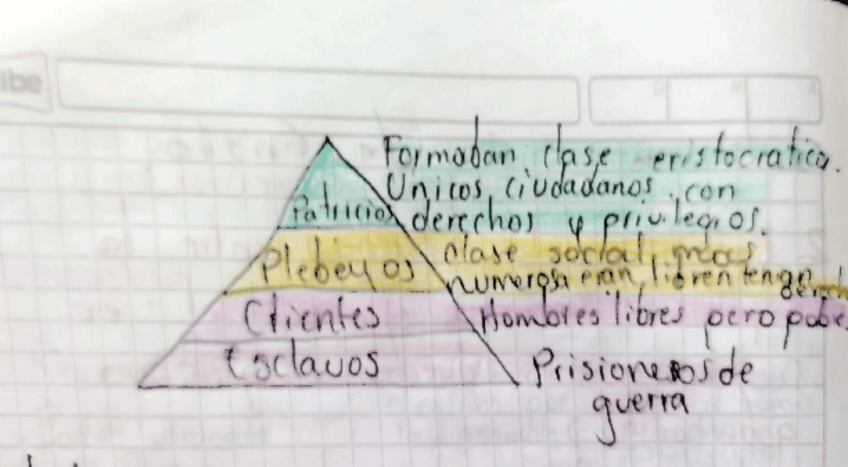 ibe
Formaban clase eristocratica.
Unicos ciudadanos con
Patricios derechos y privilegios.
clase social mas
Plebeyos numerosa eran libren tenian
derech
Clientes Hombres libres pero pobre
Esclavos Prisioneros de
guerra